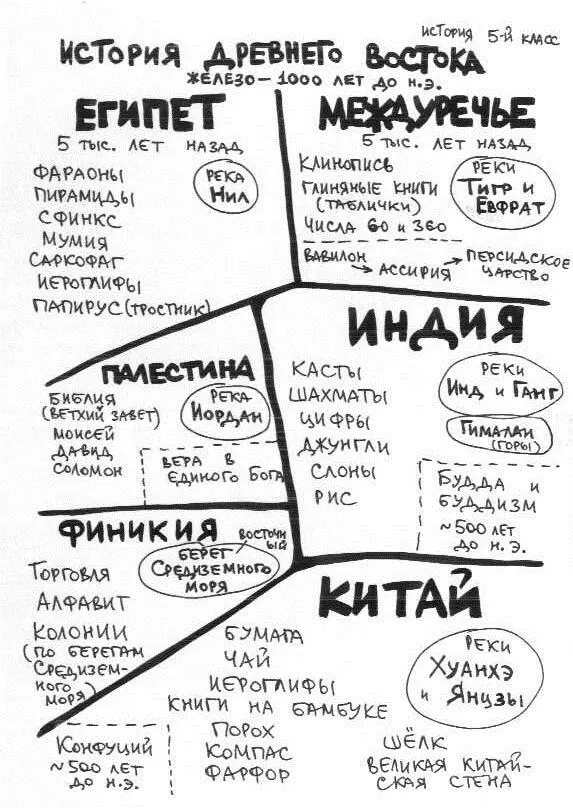 ИСТОРИЯ 5-Й КЛАСС
ИСТОРИЯ ДРЕВНЕГО ВОСТОКА
ЖЕЛЕЗО – 1000 ЛЕТ ДО Н.Э.
ЕГИПЕТ
5 ТЫС. ЛЕТ НАЗАД
ФАРАОНЫ
ПИРАМИДЫ
СФИНКС
МУМИЯ
САРКОФАГ
ИЕРОГЛИФЫ
ПАПИРУС (ТРОСТНИК)
РЕКА
НИЛ
МЕЖДУРЕЧЬЕ
5 ТЫС. ЛЕТ НАЗАД
КЛИНОПИСЬ
ГЛИНЯНЫЕ КНИГИ
(ТАБЛИЧКИ)
ЧИСЛА 60 И 360
РЕКИ
ТИГР И
ЕВФРАТ
ВАВИЛОН
→ АССИРИЯ → ПЕРСИДСКОЕ
ЦАРСТВО
ПАЛЕСТИНА
БИБЛИЯ
(ВЕТХИЙ ЗАВЕТ)
МОИСЕЙ
ДАВИД
СОЛОМОН
РЕКА
ИОРДАН
ВЕРА В
ЕДИНОГО БОГА
ИНДИЯ
КАСТЫ
ШАХМАТЫ
ЦИФРЫ
ДЖУНГЛИ
СЛОНЫ
РИС
РЕКИ
ИНД И ГАНГ
ГИМАЛАИ
(ГОРЫ)
БУДДА И
БУДДИЗМ
~500 ЛЕТ
ДО Н.Э.
ФИНИКИЯ
ВОСТОЧН
ЫЙ
БЕРЕГ
СРЕДИЗЕМНОГО
МОРЯ
ТОРГОВЛЯ
АЛФАВИТ
КОЛОНИИ
(ПО БЕРЕГАМ
СРЕДИЗЕМ-
НОГО
МОРЯ)
КИТАЙ
БУМАГА
ЧАЙ
ИЕРОГЛИФЫ
КНИГИ НА БАМБУКЕ
ПОРОХ
КОМПАС
ФАРФОР
РЕКИ
ХУАНХЭ
И ЯНЦЗЫ
ШЁЛК
ВЕЛИКАЯ КИТАЙ-
СКАЯ СТЕНА
КОНФУЦИЙ
~500 ЛЕТ
ДО Н.Э.